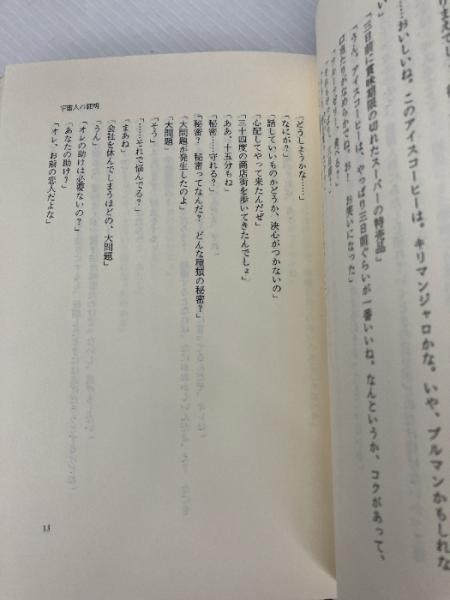 りまえてし
……おいしいね。このアイスコーヒーは。キリマンジャロかな。いや、ブルマンかもしれな
い」
「三日前に賞味期限の切れたスーパーの特売品」
「うん、アイスコーヒーは、やっぱり三日前ぐらいが一番いいね。なんというか、コクがあって、
口当たりがなめらかでね、お！　お笑いになった」
宇宙人の証明
「どうしようかな……」
「なにが？」
「話していいものかどうか、決心がつかないの」
「心配してやって来たんだぜ」
「三十四度の商店街を歩いてきたんでしょ」
「ああ、十五分もね」
「秘密……守れる？」
「秘密？　秘密ってなんだ？　どんな種類の秘密？」
「大問題が発生したのよ」
「大問題」
「そう」
「……それで悩んでる？」
「まあね」
「会社を休んでしまうほどの、大問題」
「うん」
「オレの助けは必要ないの？」
「あなたの助け？」
「オレ、お前の恋人だよな」
13